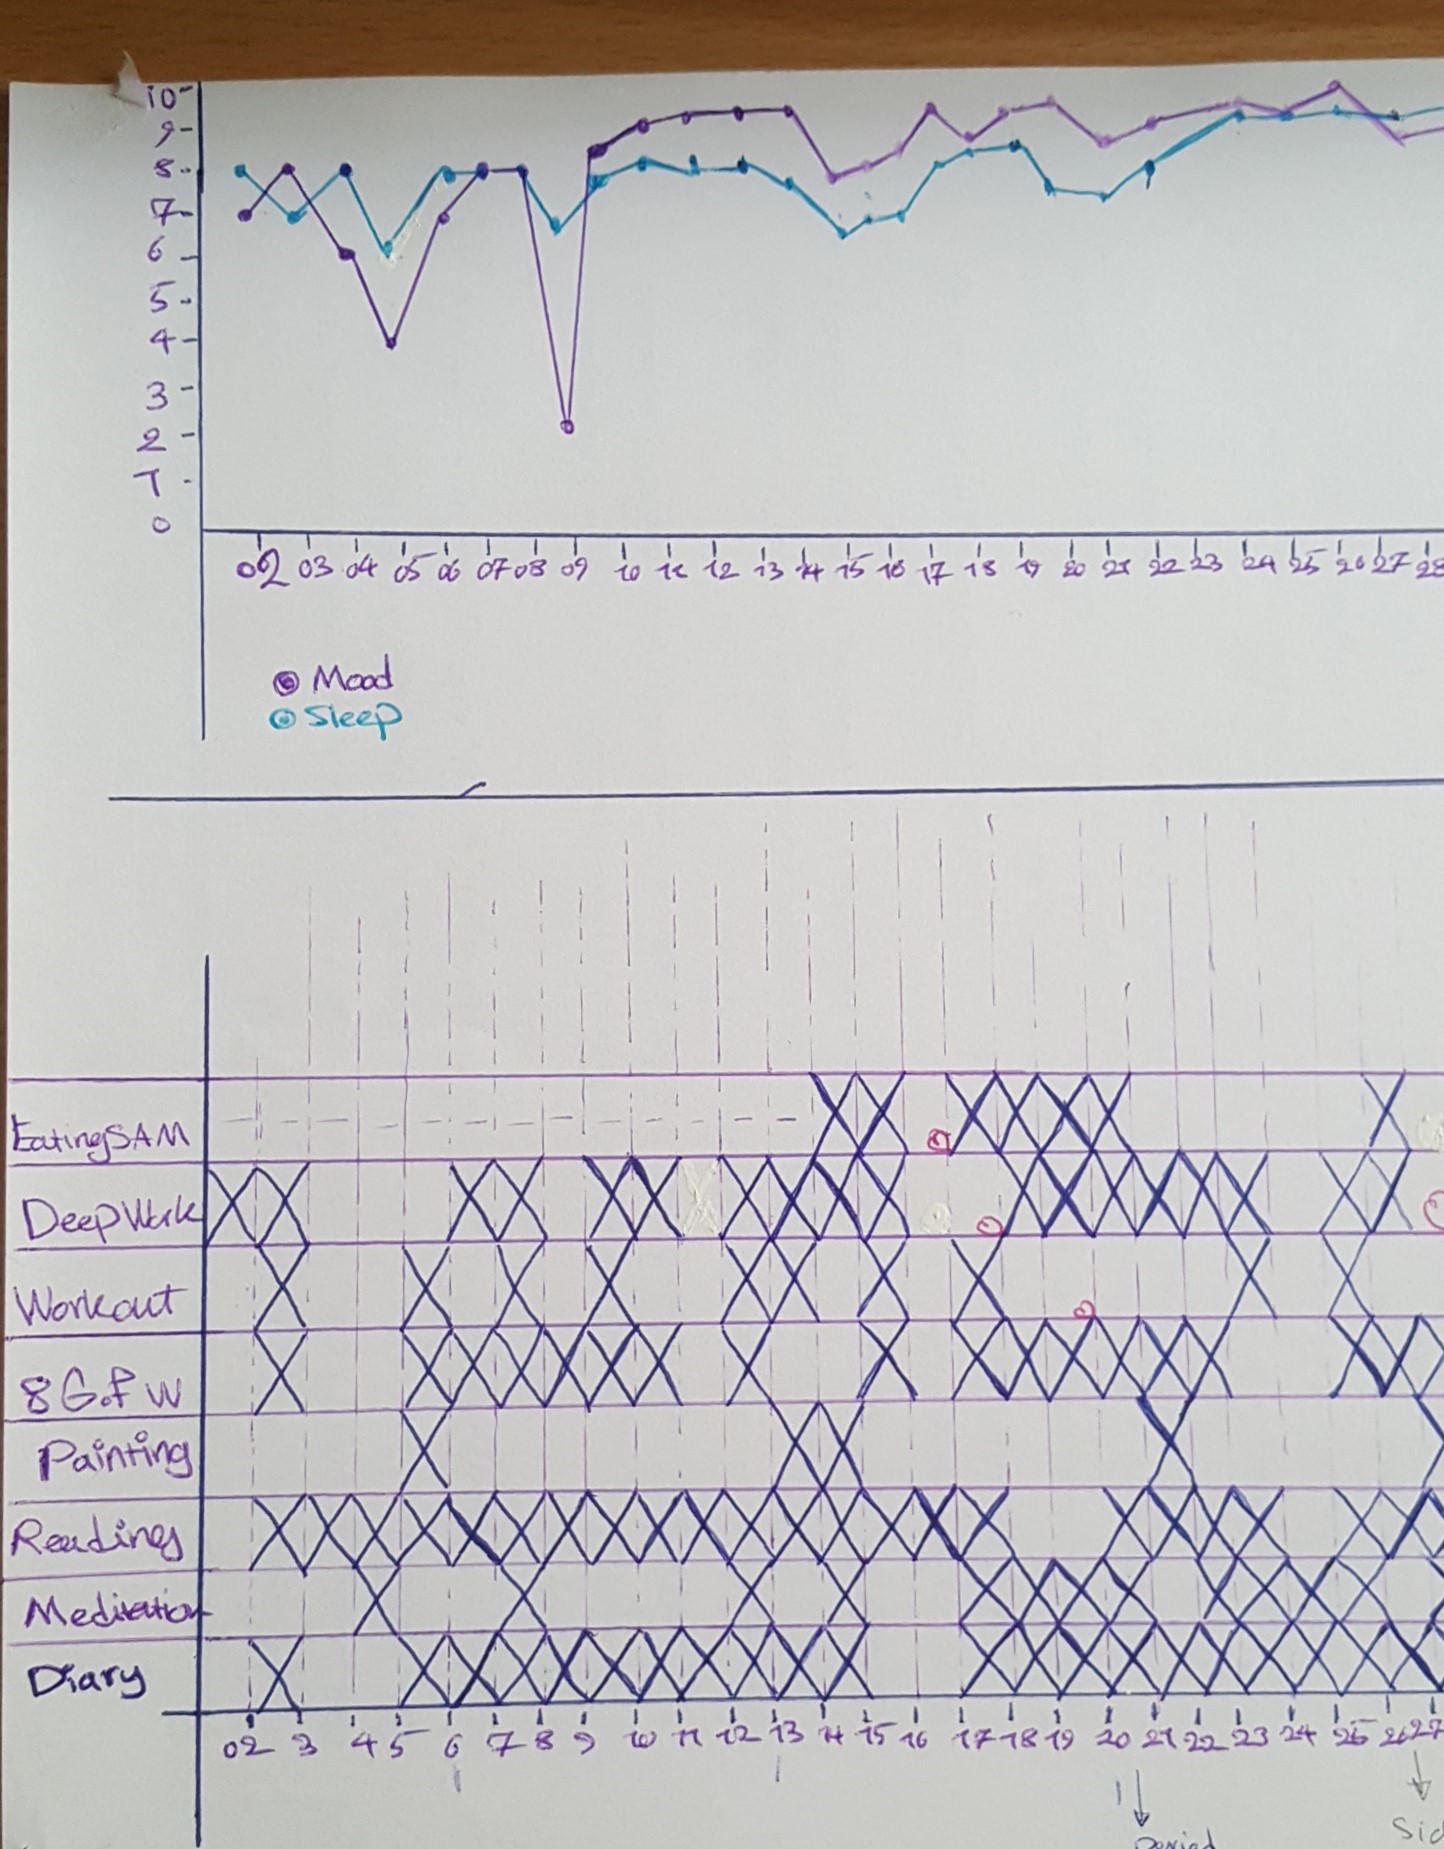 10
9
8
7
6
5
4
3
2
1
0
02 03 04 05 06 07 08 09 10 11 12 13 14 15 16 17 18 19 20 21 22 23 24 25 26 27 28
Mood
Sleep
EatingSAM
DeepWork
Workout
8 G.of W
Painting
Reading
Meditation
Diary
02 3 4 5 6 7 8 9 10 11 12 13 14 15 16 17 18 19 20 21 22 23 24 25 26 27
Period